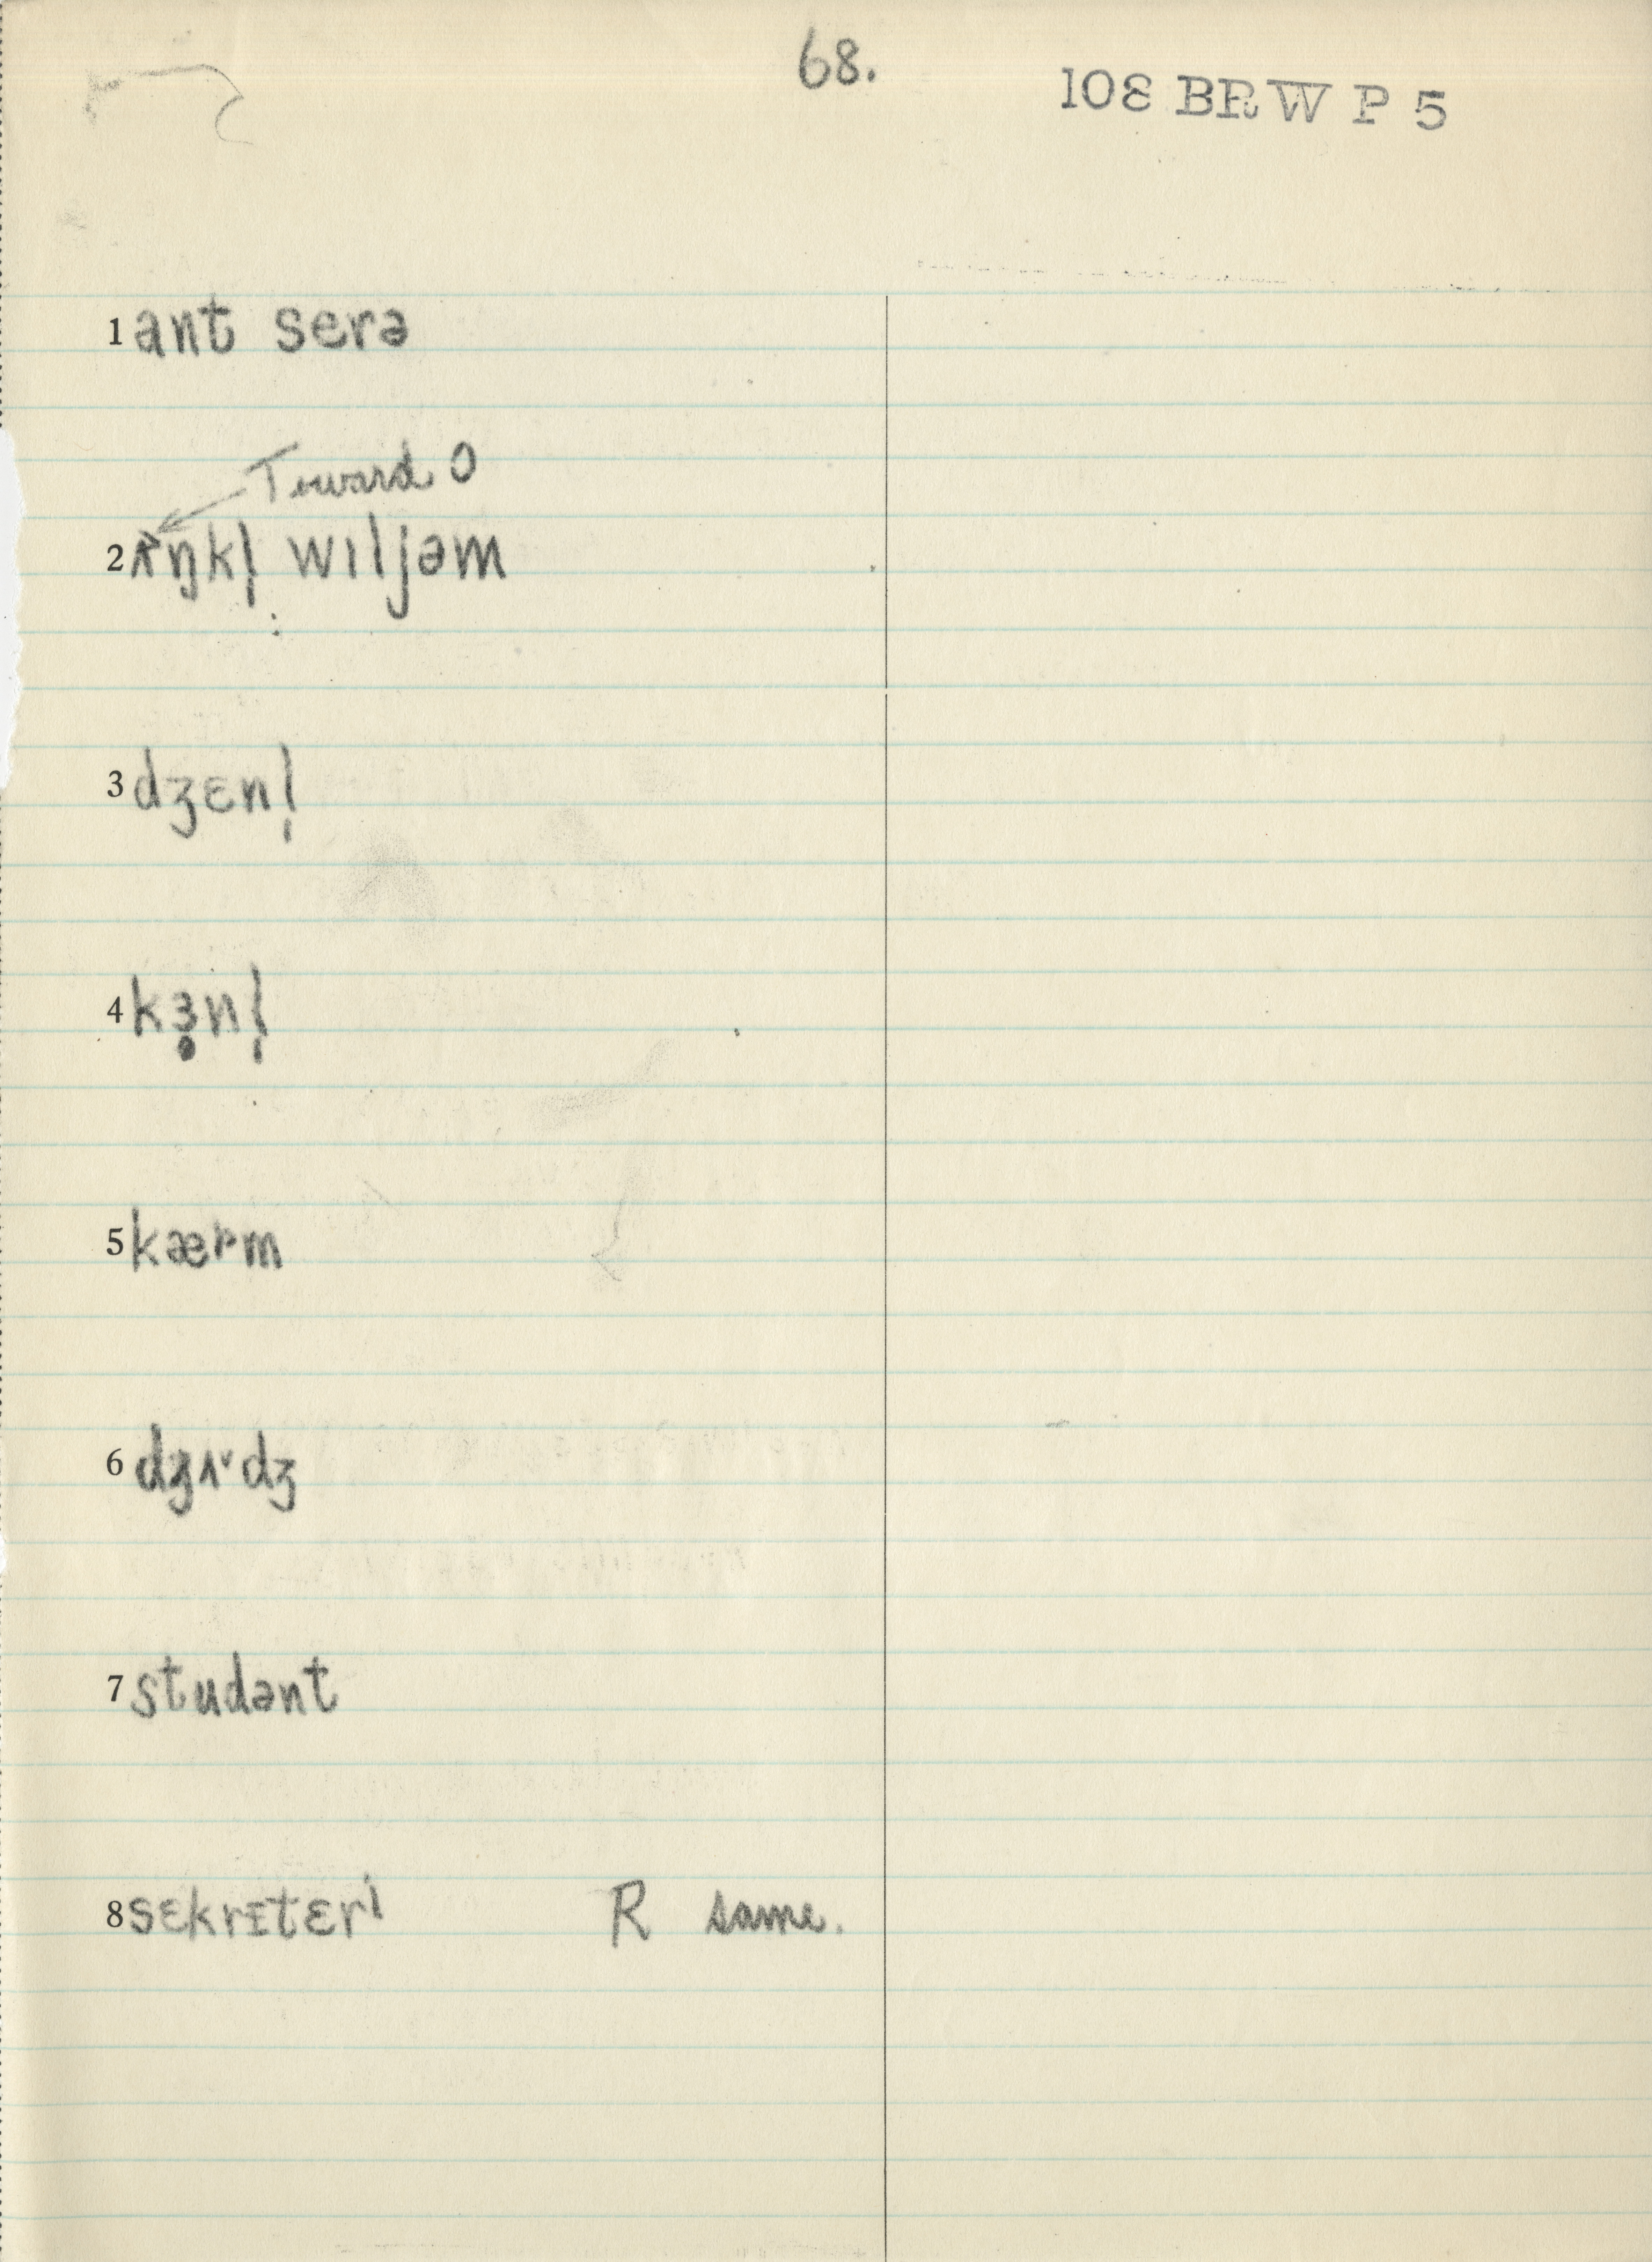 68.
108 BRW P 5
1 ant serə
Toward O
2 ʌŋkl̩ wɪljəm
3 dʒɛnl̩
4 kɜ̥nl̩
5 kærm
6 dʒʌdʒ
7 studənt
8 sɛkrɪtɛrɪ R same.